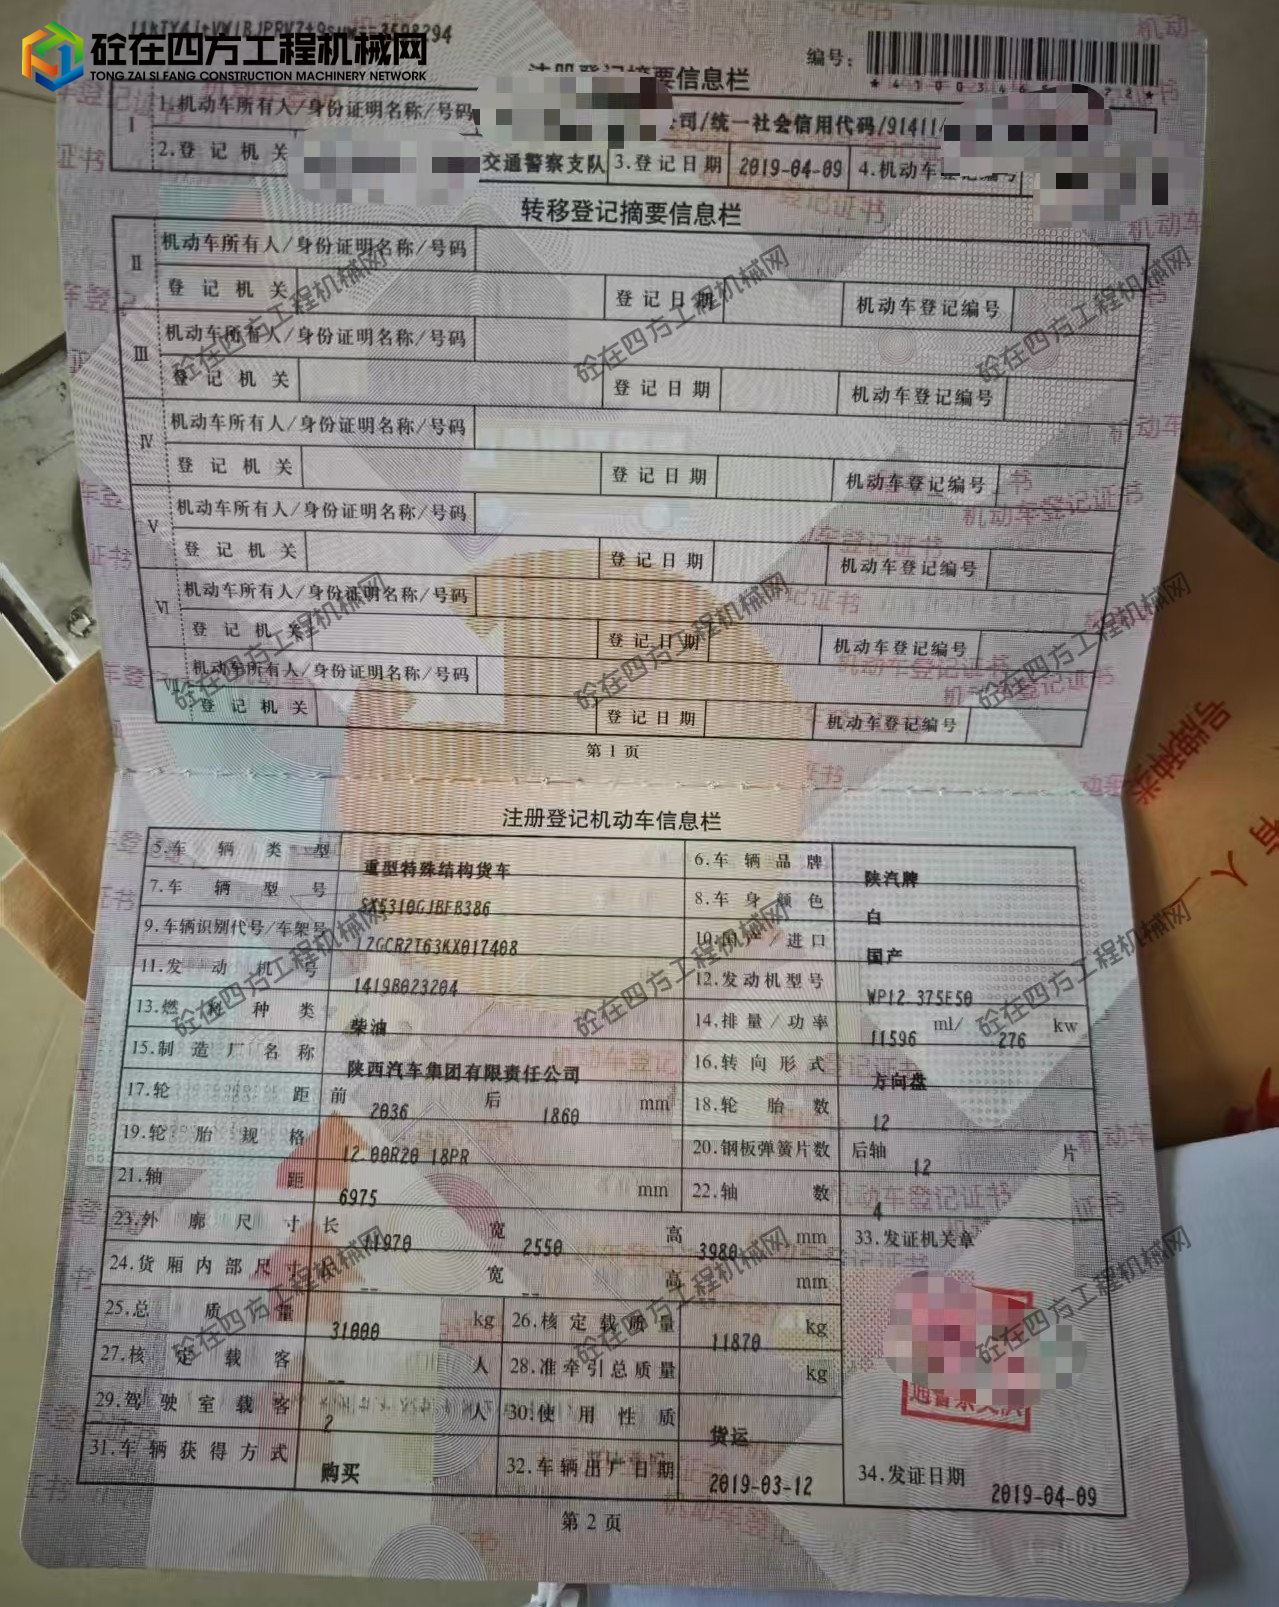 砼在四方工程机械网
TONG ZAI SI FANG CONSTRUCTION MACHINERY NETWORK
3598294
编号:
注册登记摘要信息栏
I
1.机动车所有人/身份证明名称/号码
公司/统一社会信用代码/91411
2.登记机关
交通警察支队
3.登记日期
2019-04-09
4.机动车登记编号
转移登记摘要信息栏
II
机动车所有人/身份证明名称/号码
登记机关
登记日期
机动车登记编号
III
机动车所有人/身份证明名称/号码
登记机关
登记日期
机动车登记编号
IV
机动车所有人/身份证明名称/号码
登记机关
登记日期
机动车登记编号
V
机动车所有人/身份证明名称/号码
登记机关
登记日期
机动车登记编号
VI
机动车所有人/身份证明名称/号码
登记机关
登记日期
机动车登记编号
VII
机动车所有人/身份证明名称/号码
登记机关
登记日期
机动车登记编号
第 1 页
注册登记机动车信息栏
5.车辆类型 重型特殊结构货车 6.车辆品牌 陕汽牌
7.车辆型号 SX5310GJBFB386 8.车身颜色 白
9.车辆识别代号/车架号 LZGCR2T63KX017408 10.国产/进口 国产
11.发动机号 1419B023204 12.发动机型号 WP12.375E50
13.燃料种类 柴油 14.排量/功率 11596 ml/ 276 kw
15.制造厂名称 陕西汽车集团有限责任公司 16.转向形式 方向盘
17.轮距 前 2036 后 1860 mm 18.轮胎数 12
19.轮胎规格 12.00R20 18PR 20.钢板弹簧片数 后轴 12 片
21.轴距 6975 mm 22.轴数 4
23.外廓尺寸 长 11970 宽 2550 高 3980 mm 33.发证机关章
24.货厢内部尺寸 长 -- 宽 -- 高 -- mm
25.总质量 31000 kg 26.核定载质量 11870 kg
27.核定载客 -- 人 28.准牵引总质量 -- kg
29.驾驶室载客 2 人 30.使用性质 货运
31.车辆获得方式 购买 32.车辆出厂日期 2019-03-12 34.发证日期 2019-04-09
第 2 页
号牌种类
有人